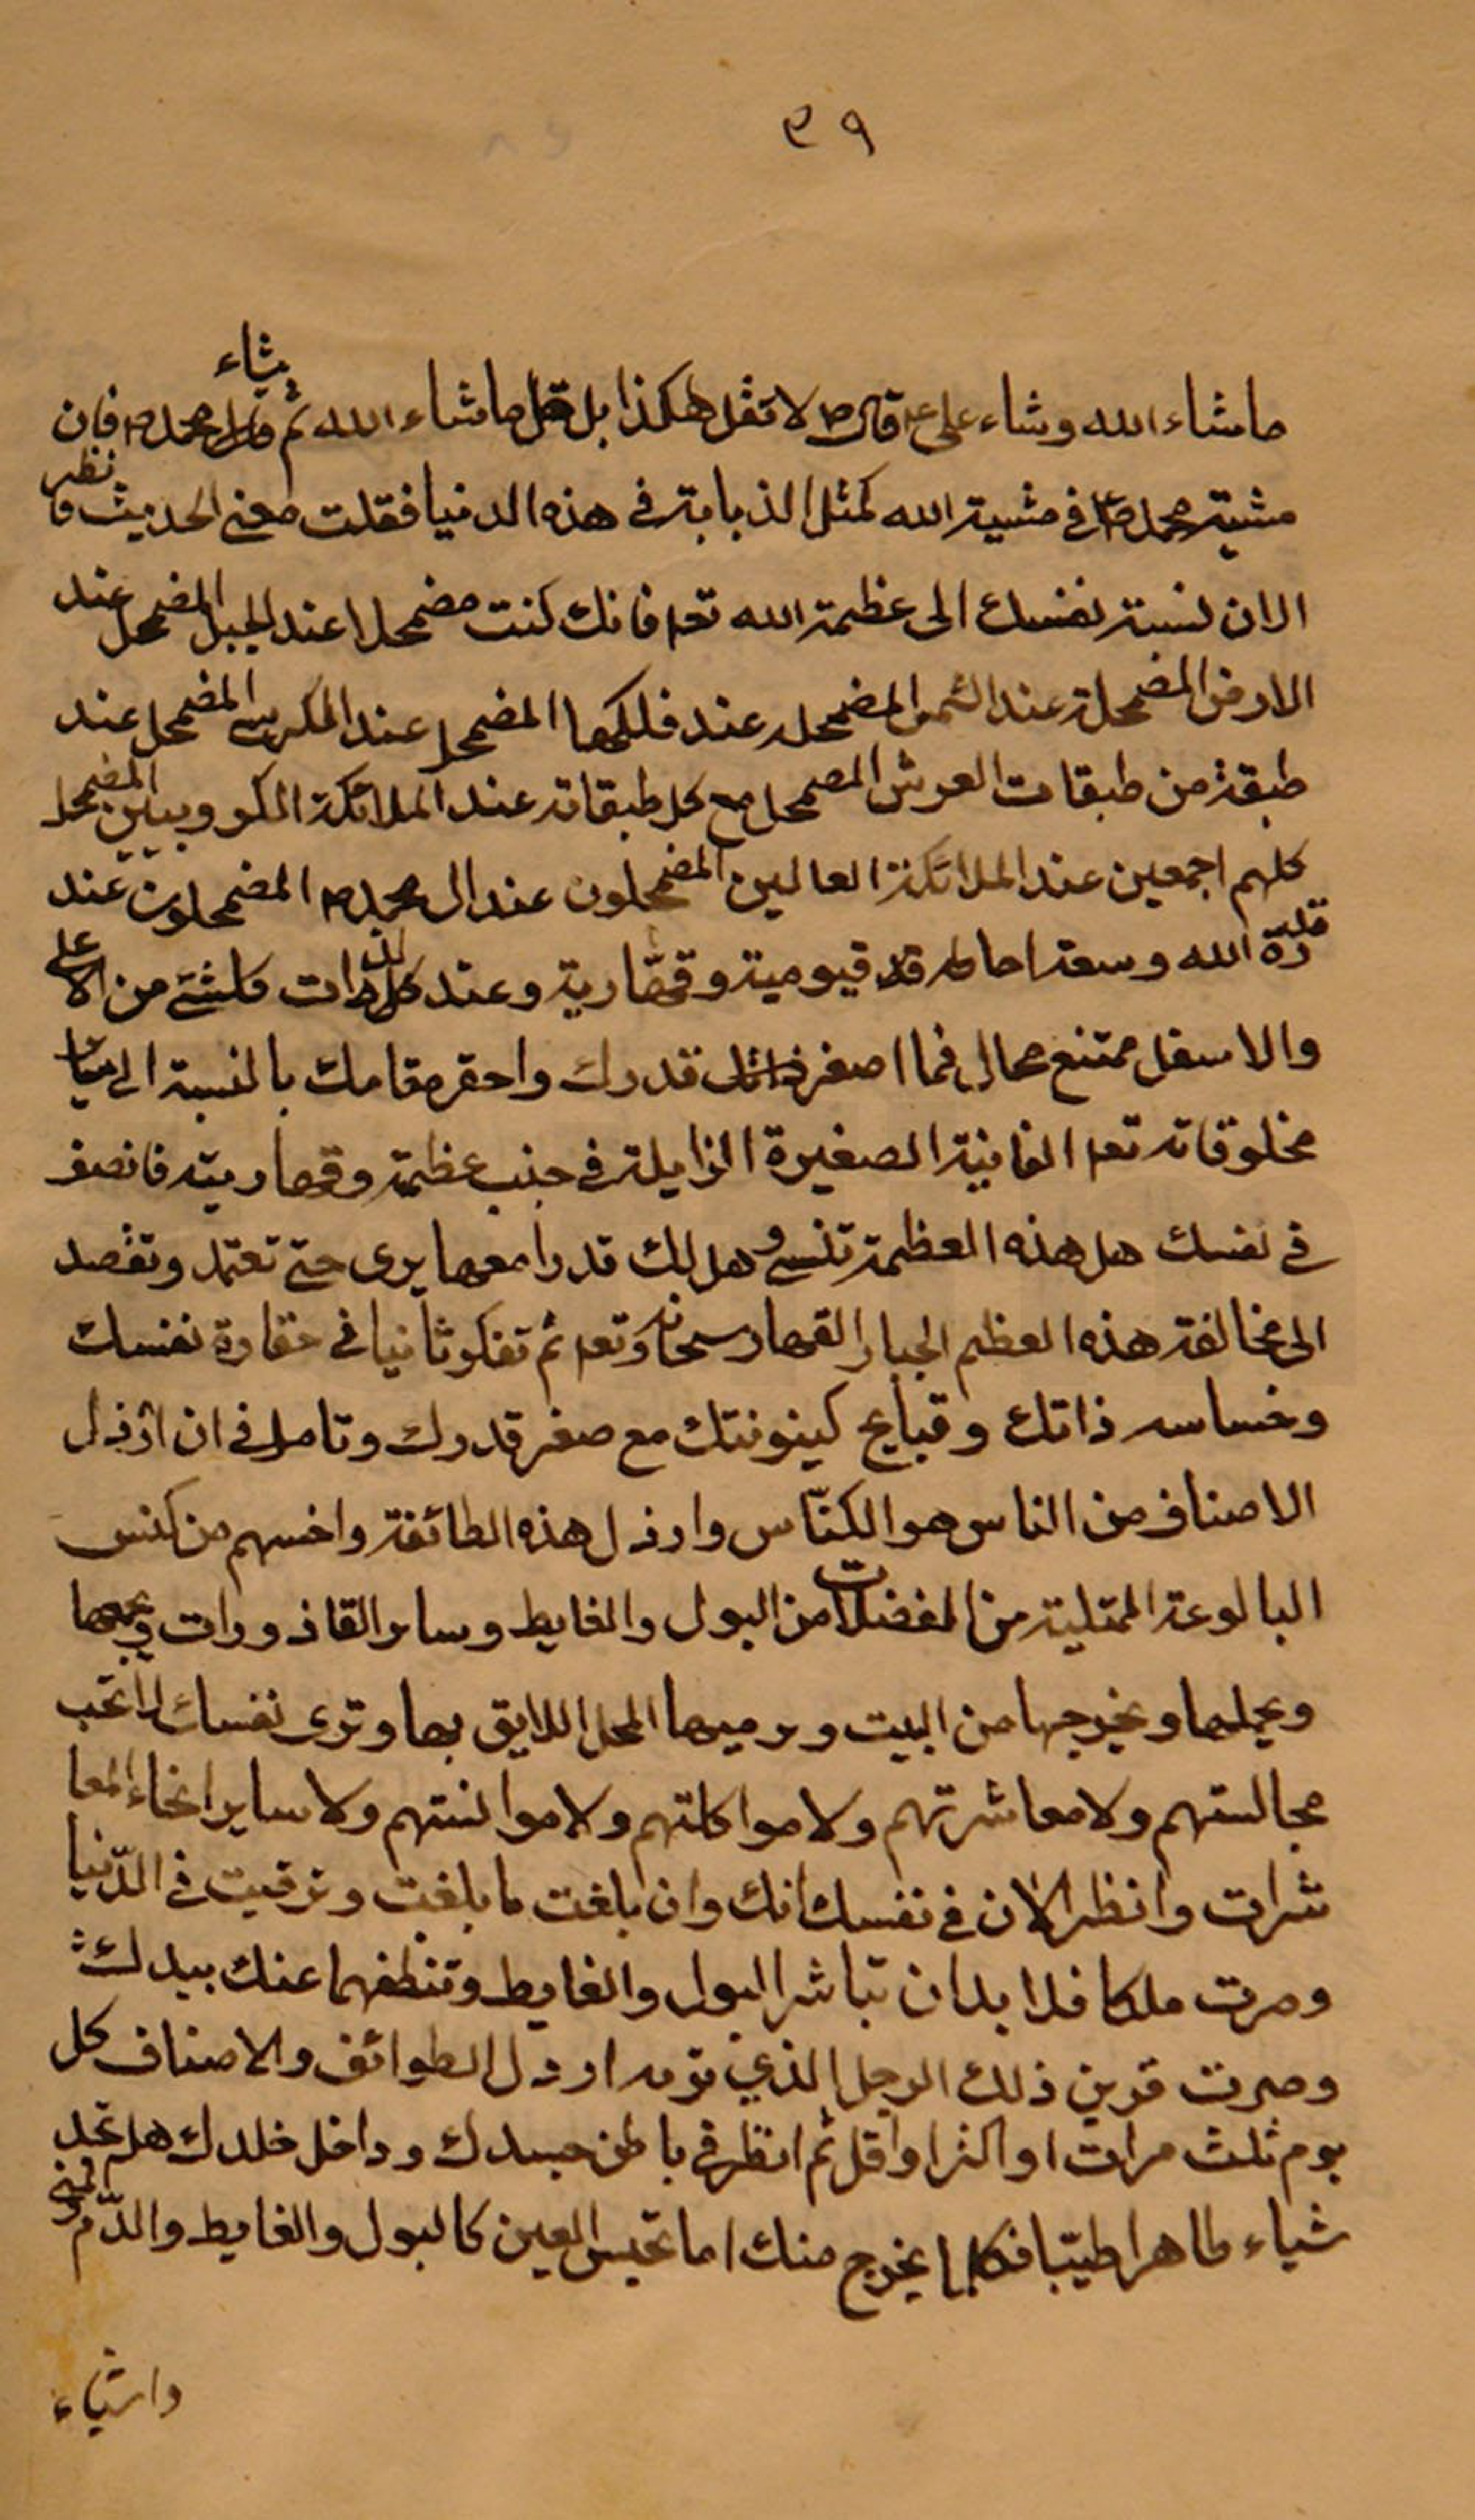 ٣٩
ما شاء الله وشاء على ع قال ص لا تقل هكذا بل قل ما شاء الله ثم يشاء محمد ص فان
مشية محمد ص في مشية الله كمثل الذبابة في هذه الدنيا فعقلت معنى الحديث فانظر
الان نسبة نفسك الى عظمة الله تعا فانك كنت مضمحلا عند الجبل المضمحل عند
الارض المضمحلة عند الشمس المضمحله عند فلكها المضمحل عند الكرسي المضمحل عند
طبقة من طبقات العرش المضمحل مع كل طبقاته عند الملائكة الكروبيين المضمحل
كلهم اجمعين عند الملائكة العالين المضمحلون عند ال محمد ص المضمحلون عند
قدرة الله وسعة احاطه قيومية وقهارية وعند كل ذرات كلشئ من الاعلى
والاسفل ممتنع محال فما اصغر قدرك واحقر مقامك بالنسبة الى سائر
مخلوقاته تعا الفانية الصغيرة الزايلة في جنب عظمة وقهاريته فانصف
في نفسك هل هذه العظمة تنسى وهل لك قدرا معها يرى حتى تعتمد وتقصد
الى مخالفة هذه العظيم الجبار القهار سبحانه وتعا ثم تفكر ثانيا في حقارة نفسك
وخساسه ذاتك وقبايح كينونتك مع صغر قدرك وتامل في ان ارذل
الاصناف من الناس هو الكنّاس وارذل هذه الطائفة واخسهم من كنس
البالوعة الممتلية من الفضلات من البول والغايط وساير القاذورات ويجمعها
ويحملها ويخرجها من البيت ويرميها المحل اللايق بها وترى نفسك لا تحب
مجالستهم ولا معاشرتهم ولا مواكلتهم ولا موانستهم ولا ساير انحاء المعا
شرات وانظر الان في نفسك انك وان بلغت ما بلغت وترقيت في الدّنيا
وصرت ملكا فلا بد ان تباشر البول والغايط وتنظفهما عنك بيدك
وصرت قرين ذلك الرجل الذي تريه ارذل الطوائف والاصناف كل
يوم ثلث مرات او اكثر او اقل ثم انظر في باطن جسدك وداخل خلدك هل تجد
شياء طاهرا طيّبا فكلما يخرج منك اما نجس العين كالبول والغايط والدّم والمنى
واشياء